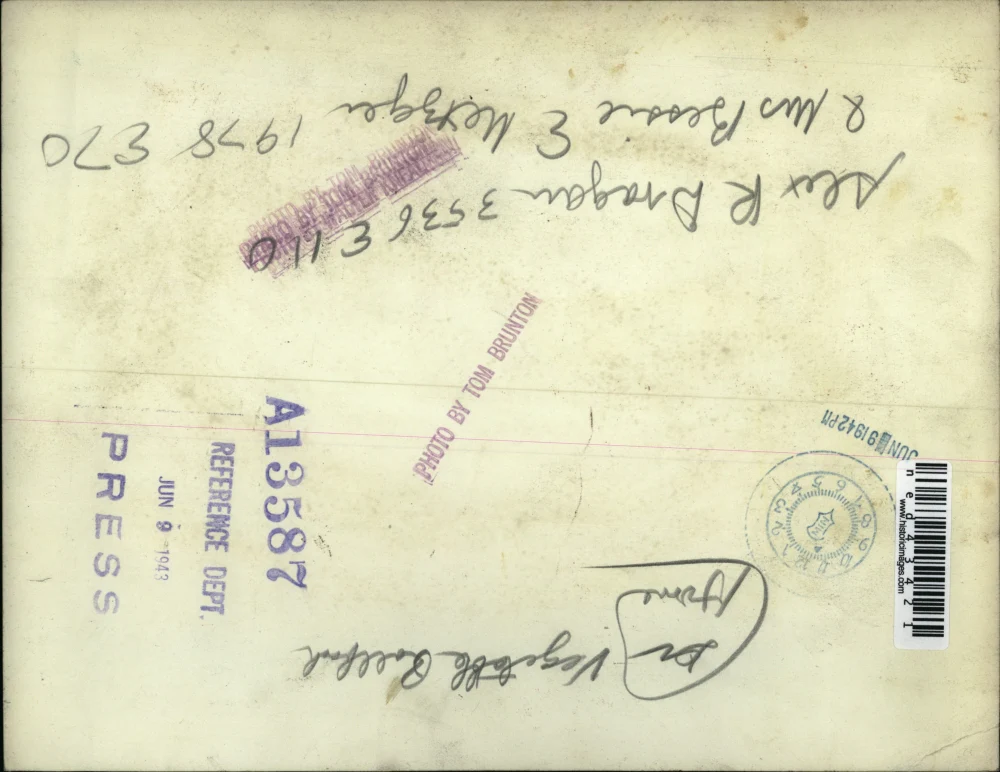 Alex R Dragan 3536 E 110
& Mrs Bessie E Metzger 1978 E70
PHOTO BY TOM BRUNTON
PHOTO BY TOM BRUNTON
A13587
REFERENCE DEPT.
JUN 9 1943
PRESS
JUN 9 1942 PM
1 2 3 4 5 6 7 8 9
Vegetable
Home
ned43421
www.historicimages.com